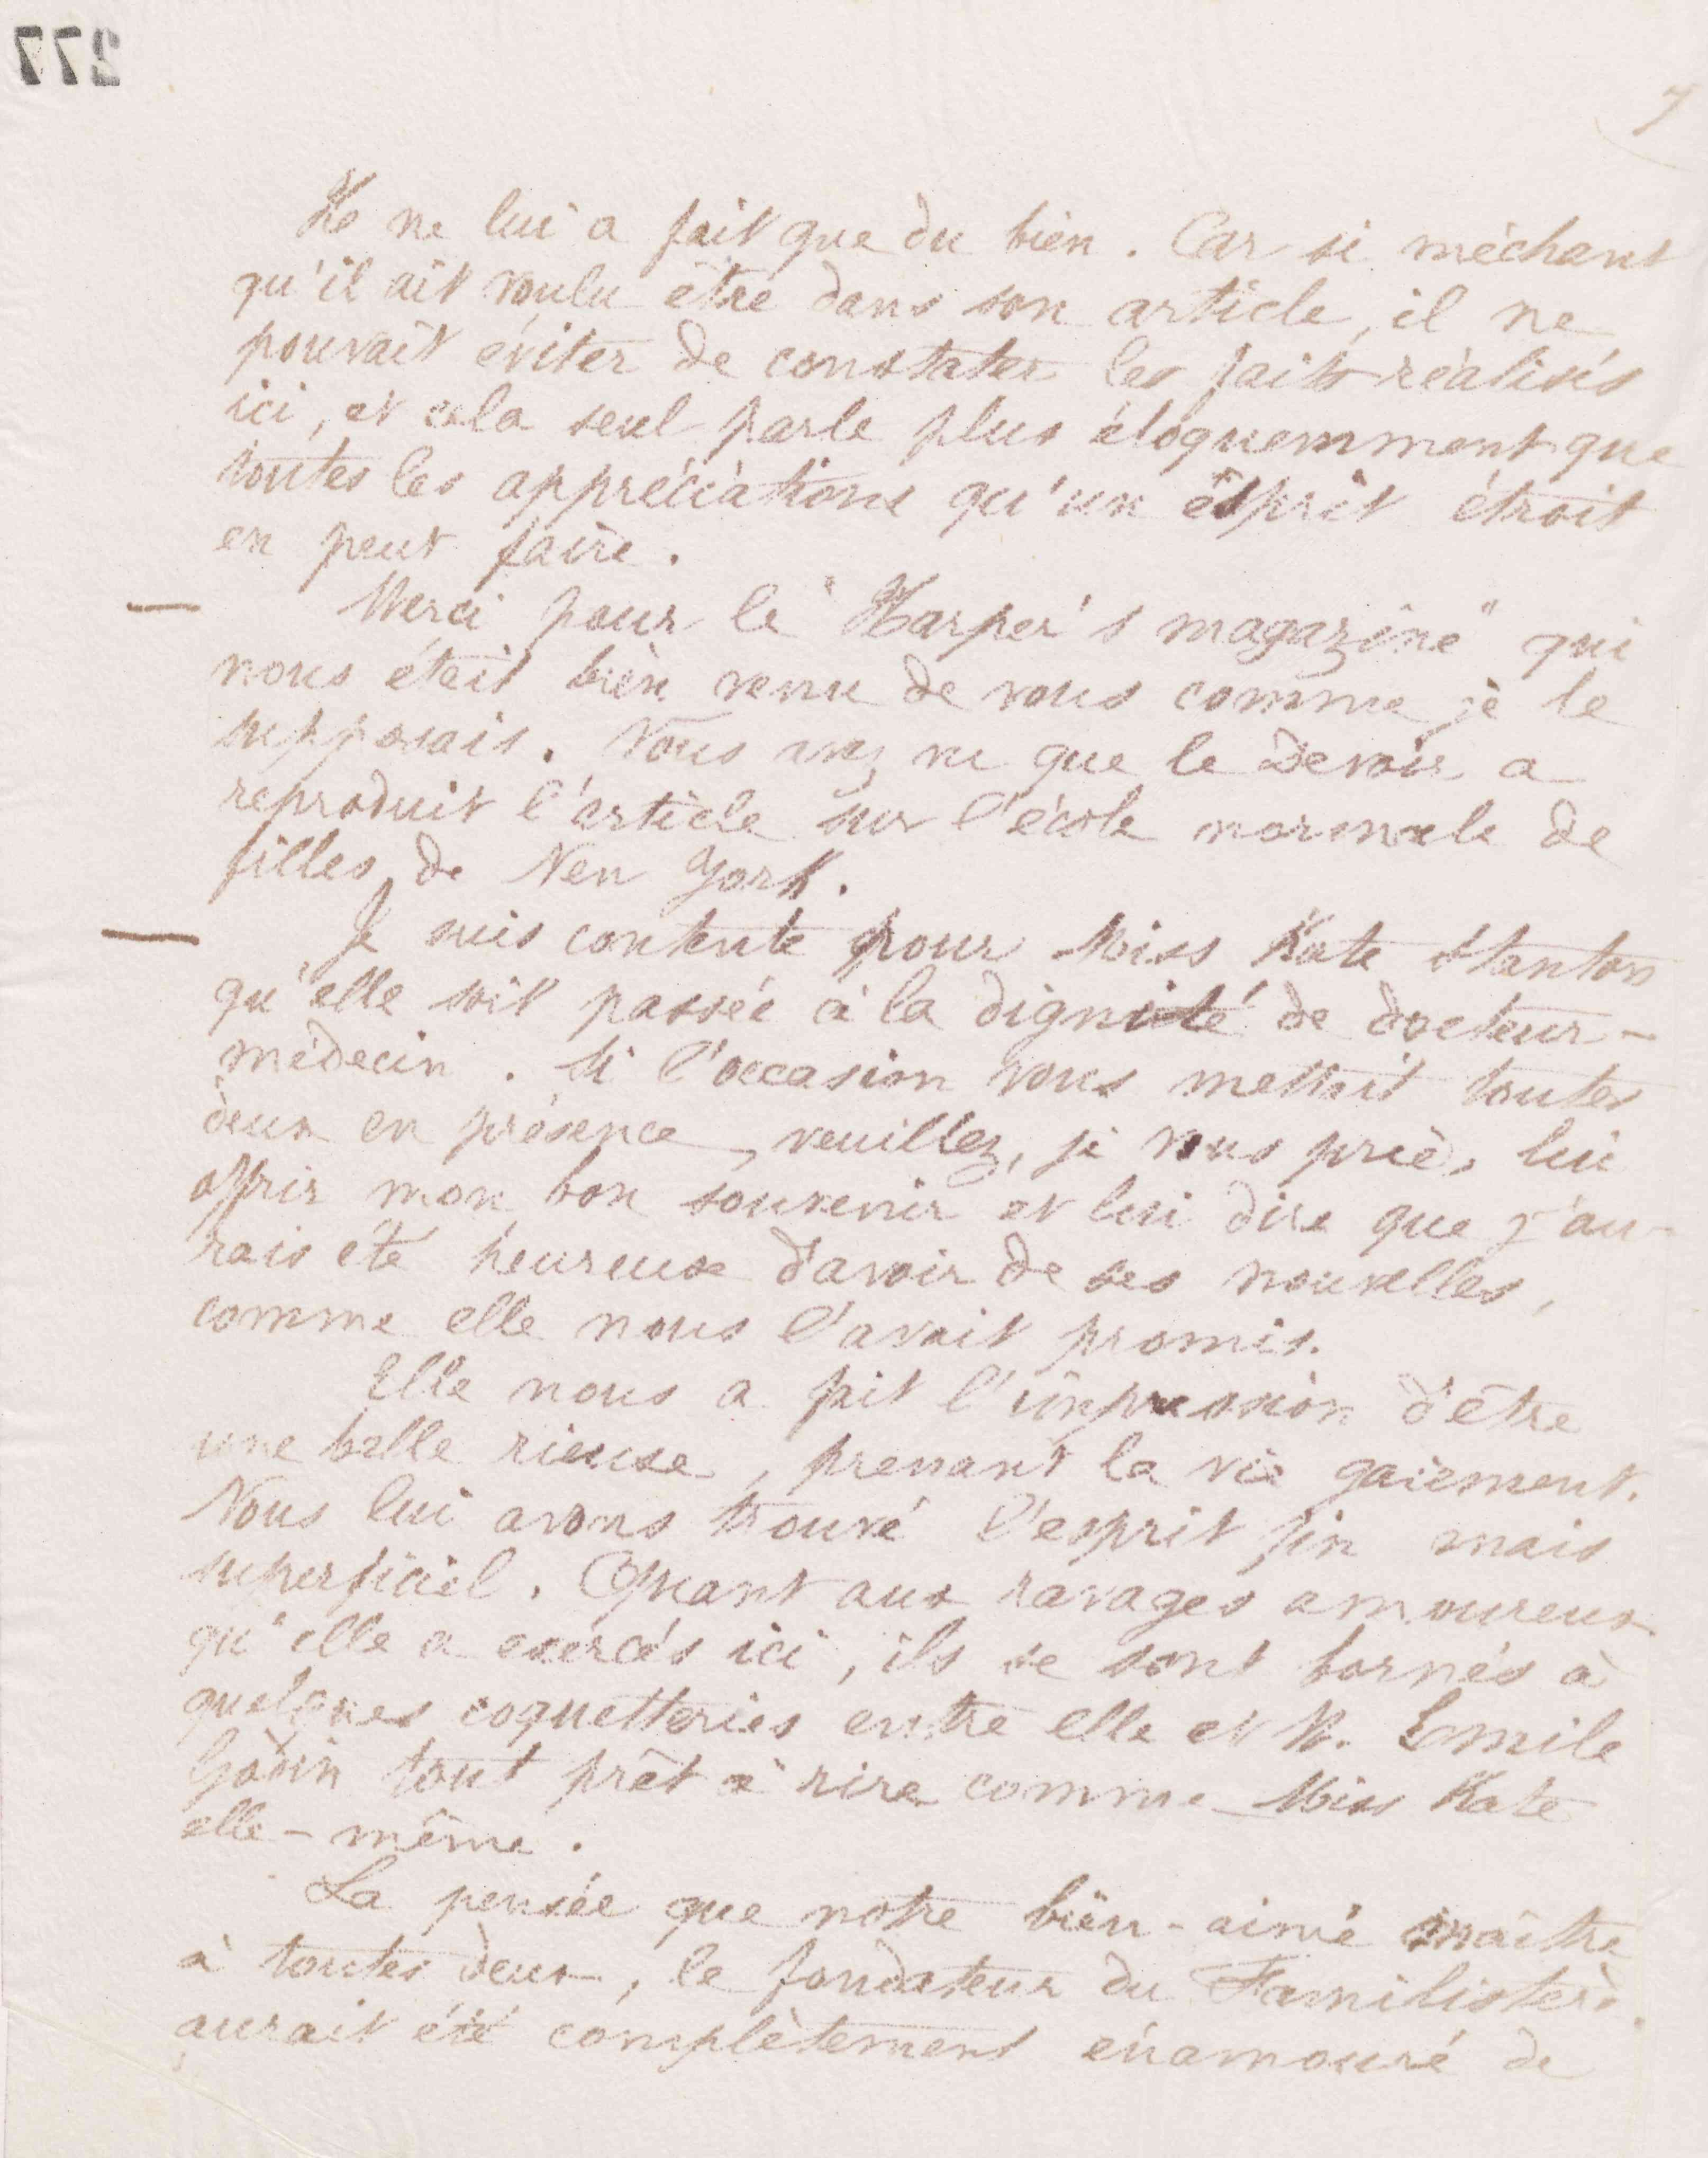 277
7
Ke ne lui a fait que du bien. Car si méchant
qu'il ait voulu être dans son article, il ne
pouvait éviter de constater les faits réalisés
ici, et cela seul parle plus éloquemment que
toutes les appréciations qu'un esprit étroit
en peut faire.
— Merci pour le "Harper's magazine" qui
nous était bien venu de vous comme je le
supposais. Vous avez vu que le Devoir a
reproduit l'article sur l'école normale de
filles de New York.
— Je suis contente pour Miss Kate Stanton
qu'elle soit passée à la dignité de docteur-
médecin. Si l'occasion vous mettait toutes
deux en présence, veuillez, je vous prie, lui
offrir mon bon souvenir et lui dire que j'au-
rais été heureuse d'avoir de ses nouvelles,
comme elle nous l'avait promis.
Elle nous a fait l'impression d'être
une belle rieuse, prenant la vie gaiement.
Nous lui avons trouvé l'esprit fin mais
superficiel. Quant aux ravages amoureux
qu'elle a exercés ici, ils se sont bornés à
quelques coquetteries entre elle et M. Emile
Godin tout prêt à rire comme Miss Kate
elle-même.
La pensée que notre bien-aimé maître
à toutes deux, le fondateur du Familistère,
aurait été complètement énamouré de